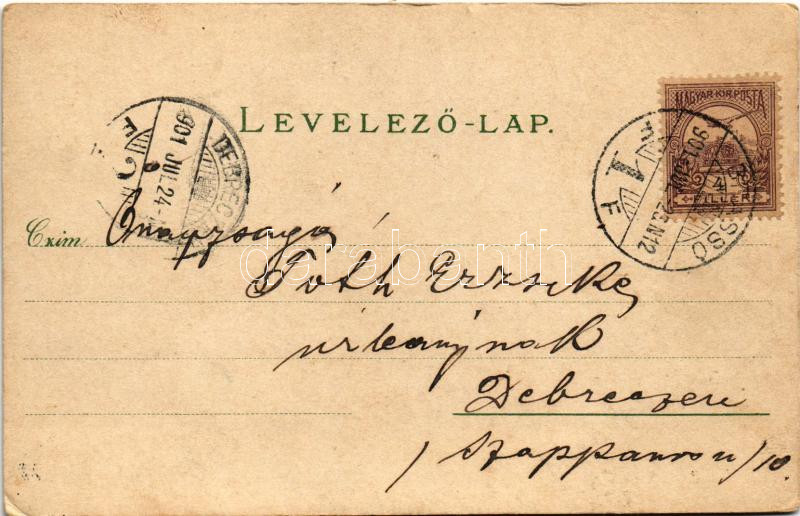 LEVELEZŐ-LAP.
MAGYAR KIR. POSTA
FILLÉR
DEBRECZ
901 JUL. 24
2
BRASSÓ
901 JUL. 23. N12
1
F
Czim Nagyságos
Tóth Erzsike
úrleánynak
Debreczen
/ Szappanos u/10.
darabanth